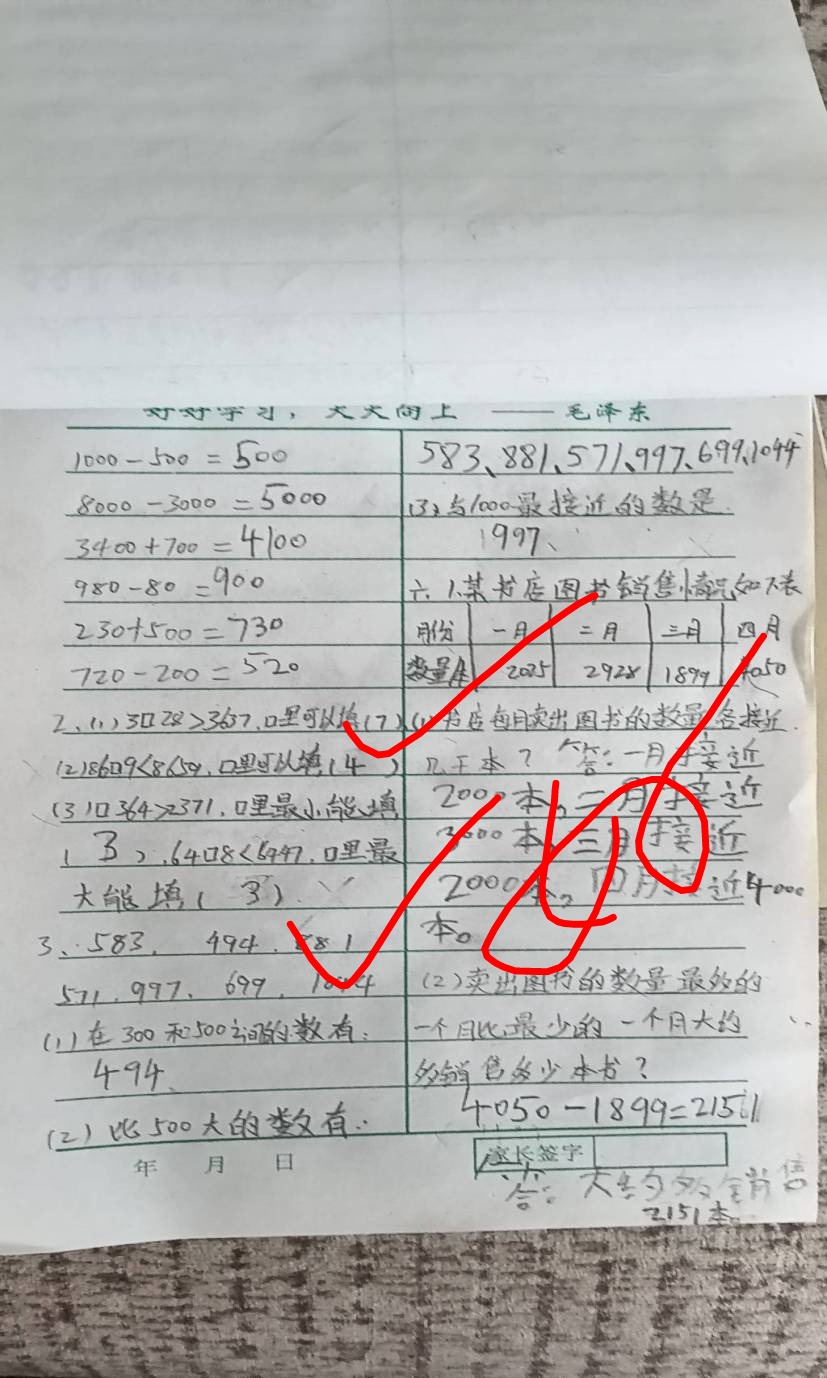 好好学习，天天向上 —— 毛泽东
1000-500=500
8000-3000=5000
3400+700=4100
980-80=900
230+500=730
720-200=520
2、(1)3口28>3637,口里可以填(7)
(2)86口9<8659,口里可以填(4)
(3)口364>2371,口里最小能填
(3),64口8<6447,口里最
大能填(3)
3、583, 494, 881
571, 997, 699, 1044
(1)在300和500之间的数有:
494、
(2)比500大的数有:
583、881、571、997、699、1044
(3)与1000最接近的数是
997、
六、1.某书店图书销售情况如下表
月份 一月 二月 三月 四月
数量/本 2025 2928 1899 4050
(1)书店每月卖出图书的数量各接近
几千本? 答:一月接近
2000本。二月接近
3000本。三月接近
2000本。四月接近4000
本。
(2)卖出图书的数量最多的
一个月比最少的一个月大约
多销售多少本书?
4050-1899=2151
年 月 日
家长签字
答:大约多销售
2151本。